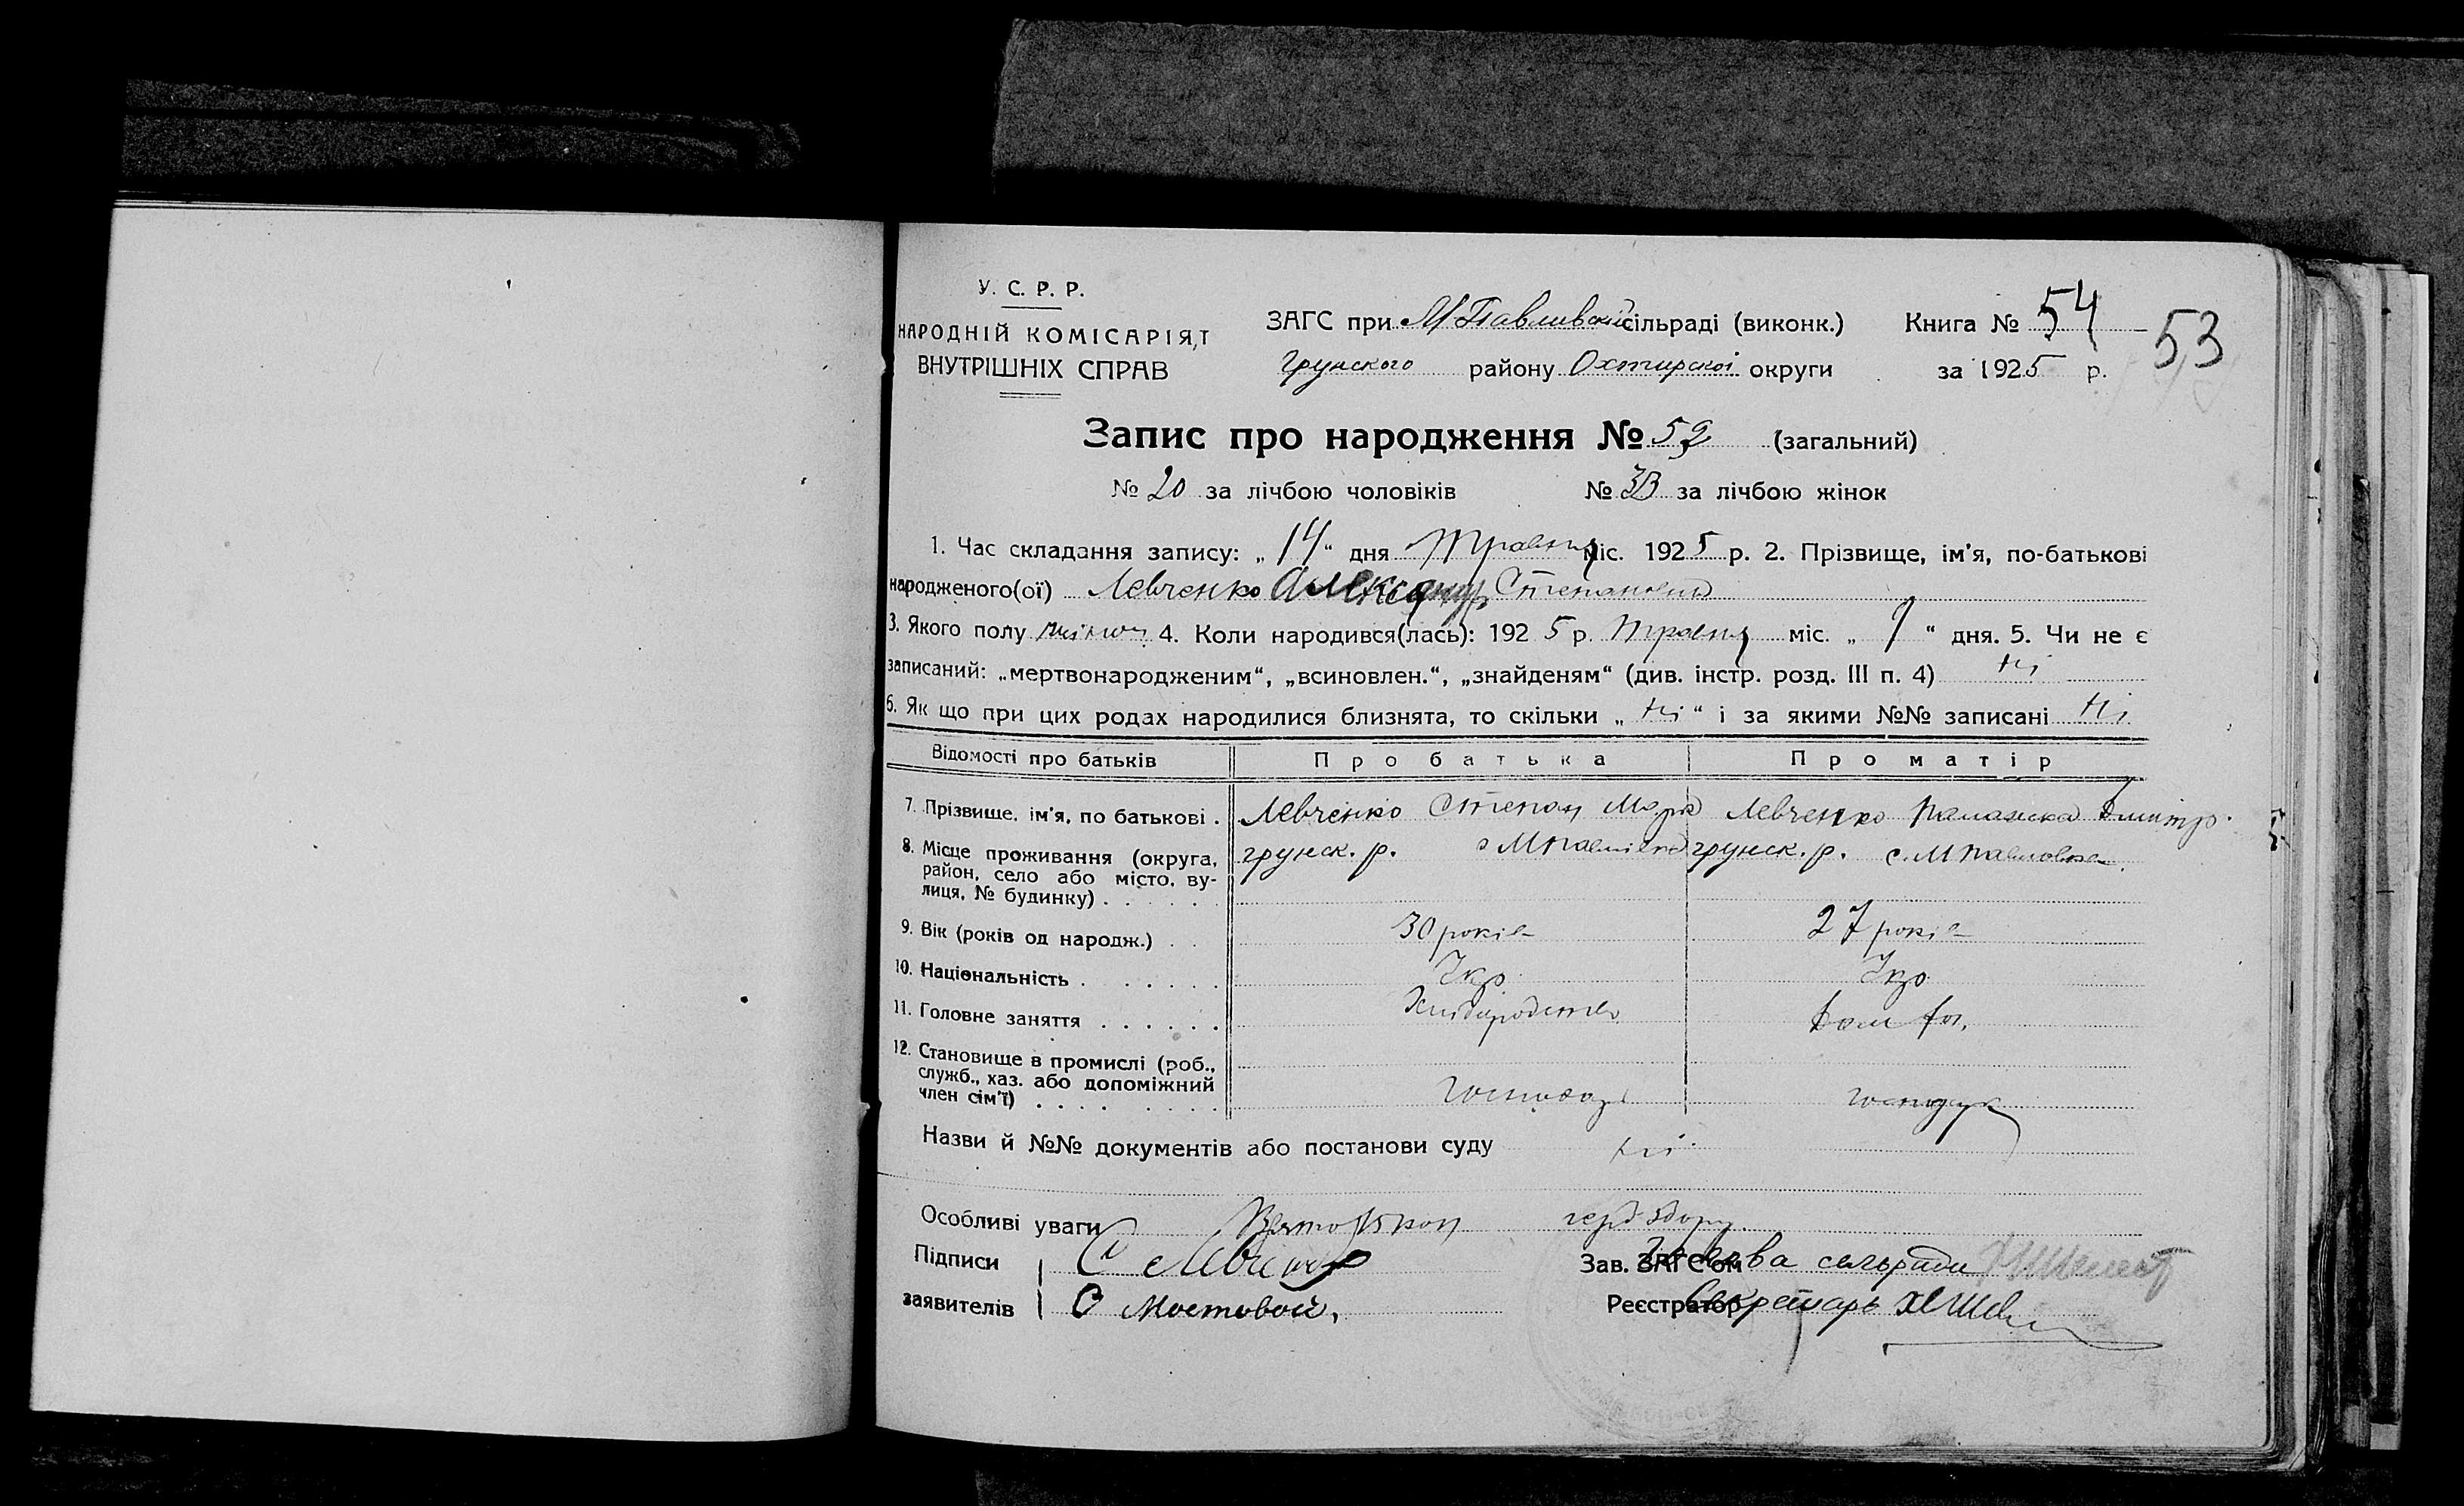 У. С. Р. Р.
НАРОДНІЙ КОМІСАРІЯТ
ВНУТРІШНІХ СПРАВ
ЗАГС при М Павливской сільраді (виконк.)
Грунского району Охтирскої округи
Книга № 54
за 1925 р.
53
Запис про народження № 52 (загальний)
№ 20 за лічбою чоловіків № 33 за лічбою жінок
1. Час складання запису: „14“ дня Травня міс. 1925 р. 2. Прізвище, ім'я, по-батькові
народженого(ої) Левченко Александр Степанович
3. Якого полу 4. Коли народився(лась): 1925 р. Травня міс. „9“ дня. 5. Чи не є
записаний: „мертвонародженим“, „всиновлен.“, „знайденям“ (див. інстр. розд. III п. 4) ні
6. Як що при цих родах народилися близнята, то скільки „ні“ і за якими №№ записані ні
Відомості про батьків Про батька Про матір
7. Прізвище, ім'я, по батькові . Левченко Степан Марк Левченко Палажка Дмитр.
8. Місце проживання (округа, район, село або місто, вулиця, № будинку) . грунск. р. с МПавлівка грунск. р. с. М Павловка
9. Вік (років од народж.) . . 30 років 27 років
10. Національність . Укр Укр
11. Головне заняття . Хлібородство Дом хоз.
12. Становище в промислі (роб., служб., хаз. або допоміжний член сім'ї) . Господар господар
Назви й №№ документів або постанови суду ні
Особливі уваги
Підписи С Левченко
заявителів О Мостовой,
Зав. ЗАГС'ом Голова сельради
Реєстратор Секретарь